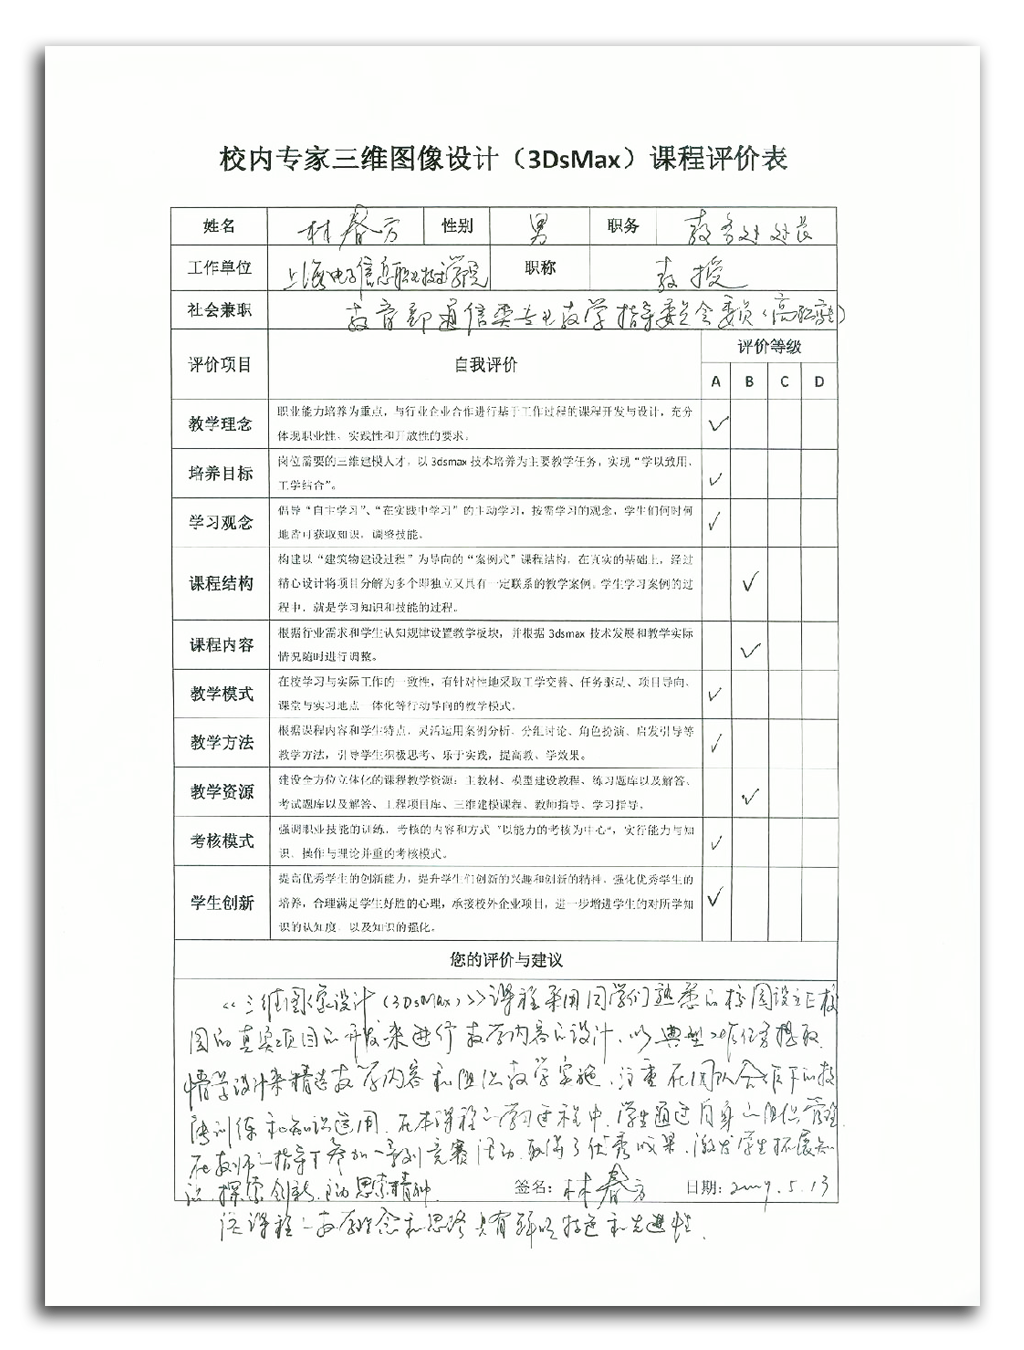 校内专家三维图像设计（3DsMax）课程评价表
姓名 林春方 性别 男 职务 教务处处长
工作单位 上海电子信息职业技术学院 职称 教授
社会兼职 教育部通信类专业教学指导委员会委员（高职高专）
评价项目 自我评价 评价等级
A B C D
教学理念 职业能力培养为重点，与行业企业合作进行基于工作过程的课程开发与设计，充分
体现职业性、实践性和开放性的要求。 ✓
培养目标 岗位需要的三维建模人才，以 3dsmax 技术培养为主要教学任务，实现“学以致用，
工学结合”。 ✓
学习观念 倡导“自主学习”、“在实践中学习”的主动学习，按需学习的观念，学生们何时何
地皆可获取知识，调整技能。 ✓
课程结构 构建以“建筑物建设过程”为导向的“案例式”课程结构，在真实的基础上，经过
精心设计将项目分解为多个即独立又具有一定联系的教学案例。学生学习案例的过
程中，就是学习知识和技能的过程。 ✓
课程内容 根据行业需求和学生认知规律设置教学板块，并根据 3dsmax 技术发展和教学实际
情况随时进行调整。 ✓
教学模式 在校学习与实际工作的一致性，有针对性地采取工学交替、任务驱动、项目导向、
课堂与实习地点一体化等行动导向的教学模式。 ✓
教学方法 根据课程内容和学生特点，灵活运用案例分析、分组讨论、角色扮演、启发引导等
教学方法，引导学生积极思考、乐于实践，提高教、学效果。 ✓
教学资源 建设全方位立体化的课程教学资源：主教材、模型建设教程、练习题库以及解答、
考试题库以及解答、工程项目库、三维建模课程、教师指导、学习指导。 ✓
考核模式 强调职业技能的训练，考核的内容和方式“以能力的考核为中心”，实行能力与知
识、操作与理论并重的考核模式。 ✓
学生创新 提高优秀学生的创新能力，提升学生们创新的兴趣和创新的精神，强化优秀学生的
培养，合理满足学生好胜的心理，承接校外企业项目，进一步增进学生的对所学知
识的认知度，以及知识的强化。 ✓
您的评价与建议
《三维图像设计（3DsMax）》课程采用同学们熟悉的校园设立正校
园的真实项目的开发来进行教学内容的设计，以典型工作任务提取、
情学设计来精选教学内容和组织教学实施，注重在团队合作下的技
能训练和知识运用，在本课程的学习过程中，学生通过自身的组织管理，
在教师的指导下参加一系列竞赛活动，取得了优秀成果，激发学生拓展知
识、探索创新的思索精神。 签名：林春方 日期：2009.5.13
该课程的教学理念和思路具有鲜明特色和先进性。